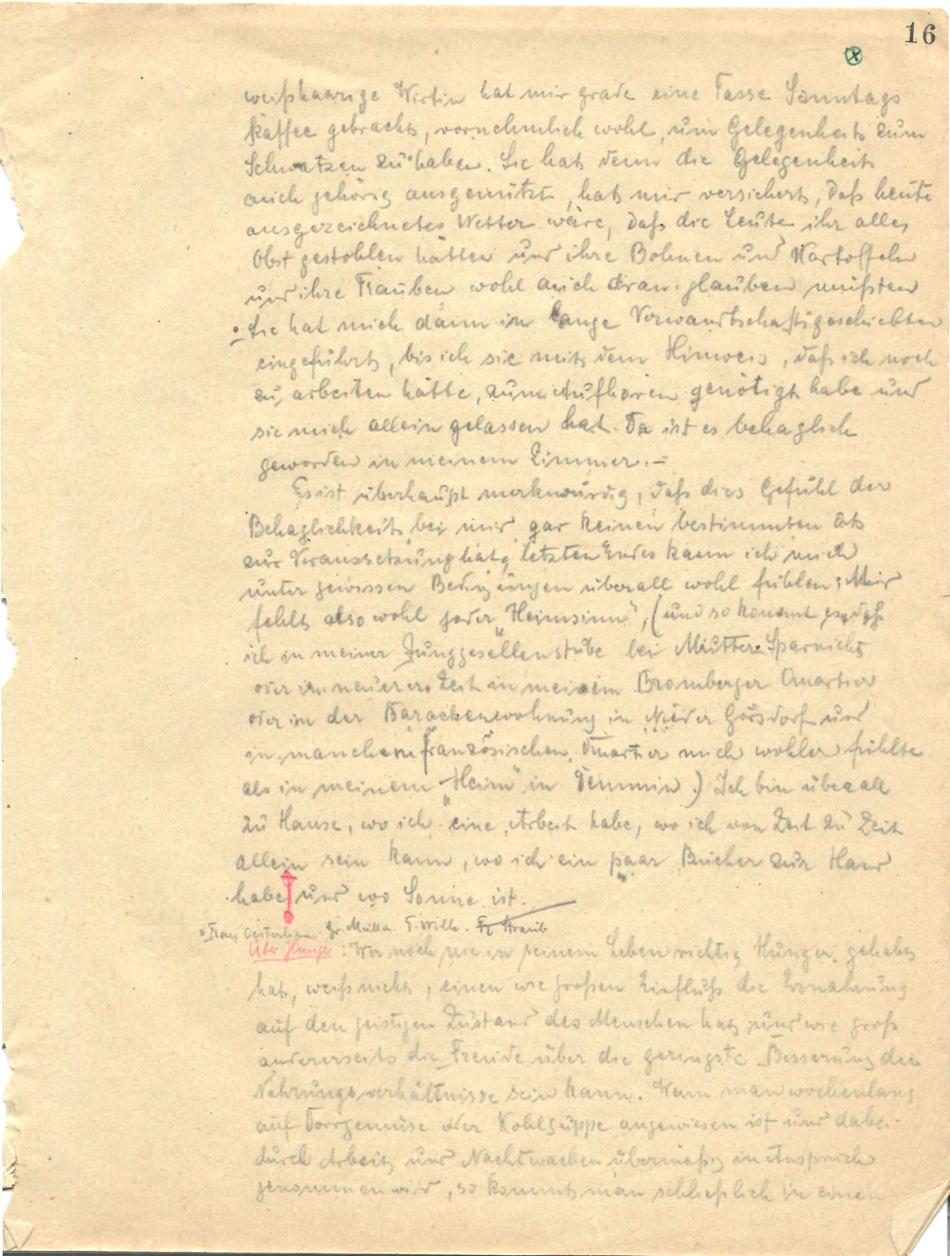 16
weißhaarige Wirtin hat mir grade eine Tasse Sonntags
kaffee gebracht, vornehmlich wohl, um Gelegenheit zum
Schwatzen zu haben. Sie hat denn die Gelegenheit
auch gehörig ausgenützt, hat mir versichert, daß heute
ausgezeichnetes Wetter wäre, daß die Leute ihr alles
Obst gestohlen hätten und ihre Bohnen und Kartoffeln
und ihre Trauben wohl auch dran glauben müßten
Sie hat mich dann in lange Verwandtschaftsgeschichten
eingeführt, bis ich sie mit dem Hinweis, daß ich noch
zu arbeiten hätte, zum Aufhören genötigt habe und
sie mich allein gelassen hat. Da ist es behaglich
geworden in meinem Zimmer. –
Es ist überhaupt merkwürdig, daß dies Gefühl der
Behaglichkeit bei mir gar keinen bestimmten Ort
zur Voraussetzung hat, letzten Endes kann ich mich
unter gewissen Bedingungen überall wohl fühlen; Mir
fehlt also wohl jeder "Heimsinn", (und so kommt es, daß
ich in meiner Junggesellenstube bei Mutter Sparnicht
oder in neuerer Zeit in meinem Bromberger Quartier
oder in der Barackenwohnung in Nieder Görsdorf und
in manchem französischen Quartier mich wohler fühlte
als in meinem "Heim" in Demmin.) Ich bin überall
zu Hause, wo ich eine Arbeit habe, wo ich von Zeit zu Zeit
allein sein kann, wo ich ein paar Bücher zur Hand
habe und wo Sonne ist.
Müller
Straub
Über Hunger: Wer noch nie in seinem Leben richtig Hunger gehabt
hat, weiß nicht, einen wie großen Einfluß die Ernährung
auf den geistigen Zustand des Menschen hat und wie groß
andererseits die Freude über die geringste Besserung der
Nahrungsverhältnisse sein kann. Wenn man wochenlang
auf Dörrgemüse oder Kohlsuppe angewiesen ist und dabei
durch Arbeit und Nachtwachen übermäßig in Anspruch
genommen wird, so kommt man schließlich in einen